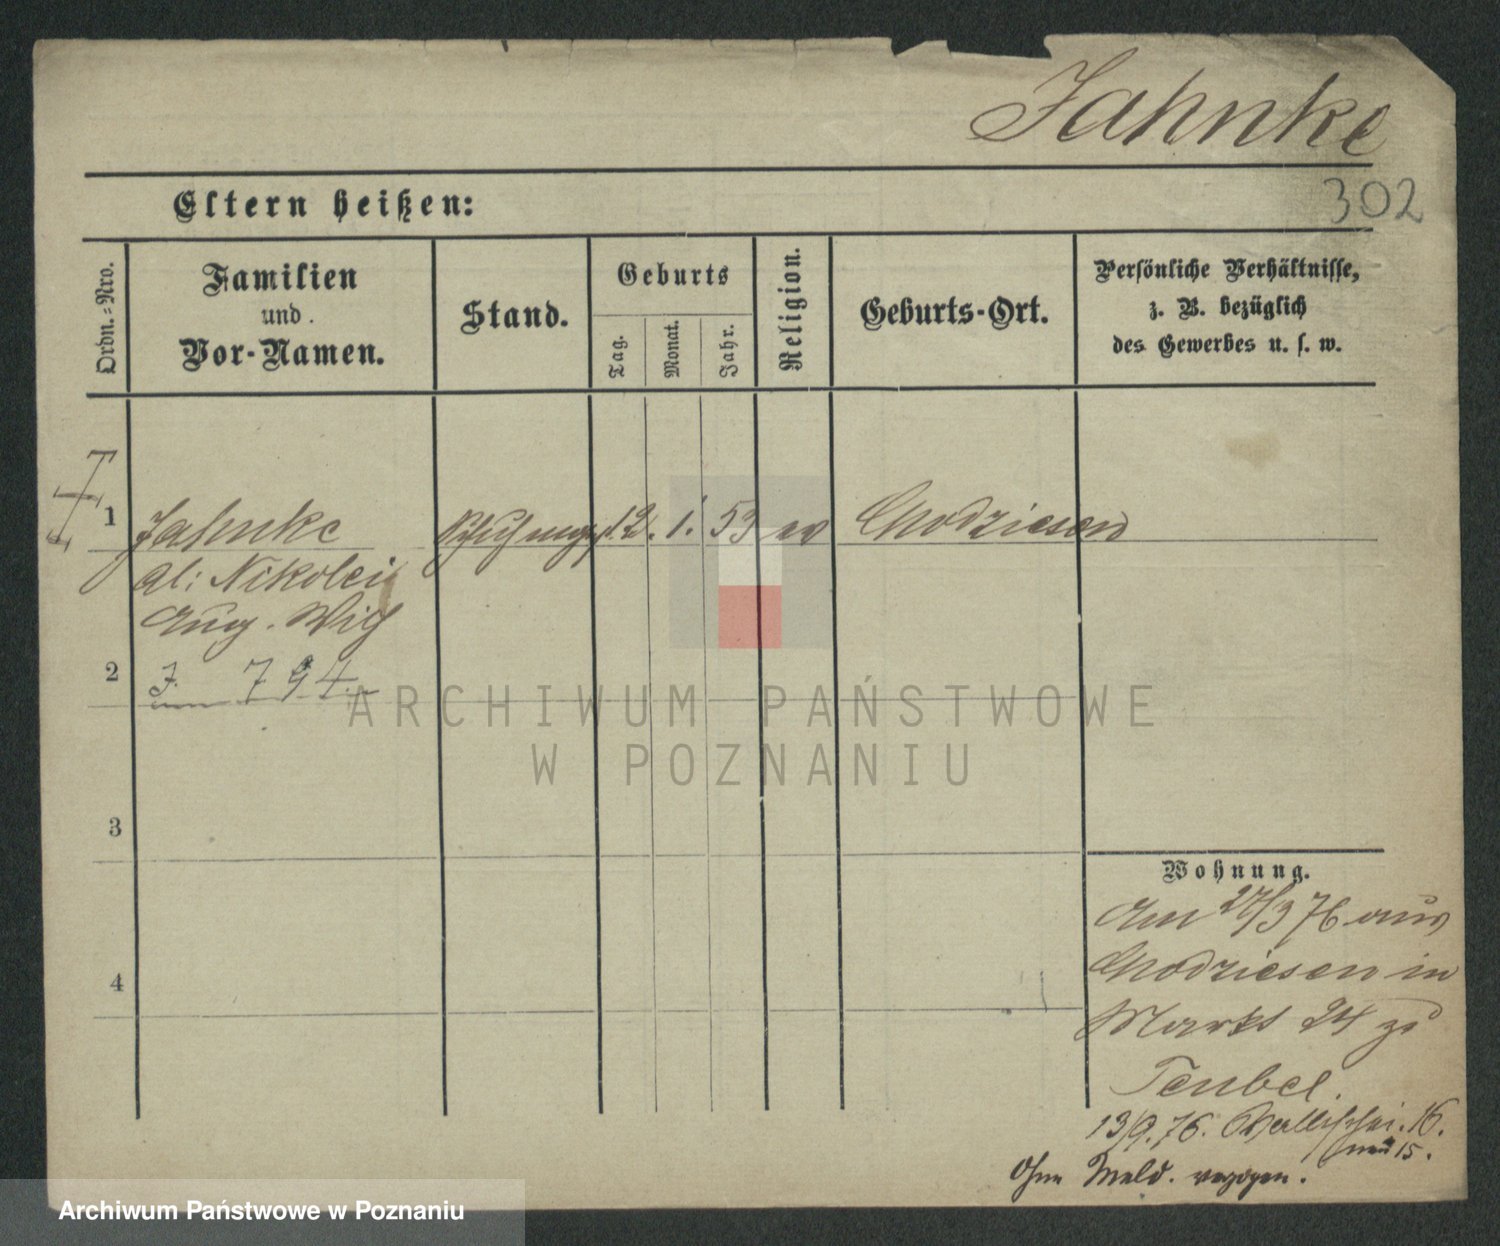 Jahnke
302
Eltern heißen:
Ordn.-Nro.
Familien
und
Vor-Namen.
Stand.
Geburts
Tag.
Monat.
Jahr.
Religion.
Geburts-Ort.
Persönliche Verhältnisse,
z. B. bezüglich
des Gewerbes u. s. w.
1 Jahnke 12. 1. 53 ev Chodziesen
al: Nikolei
Aug.
2 J. 794
3
4
Wohnung.
Am 27/3 76 aus
Chodziesen in
Markt 24 zu
Teubel.
13/9. 76. Wallischei. 16.
neu 15.
Ohne Meld. verzogen.
ARCHIWUM PAŃSTWOWE
W POZNANIU
Archiwum Państwowe w Poznaniu